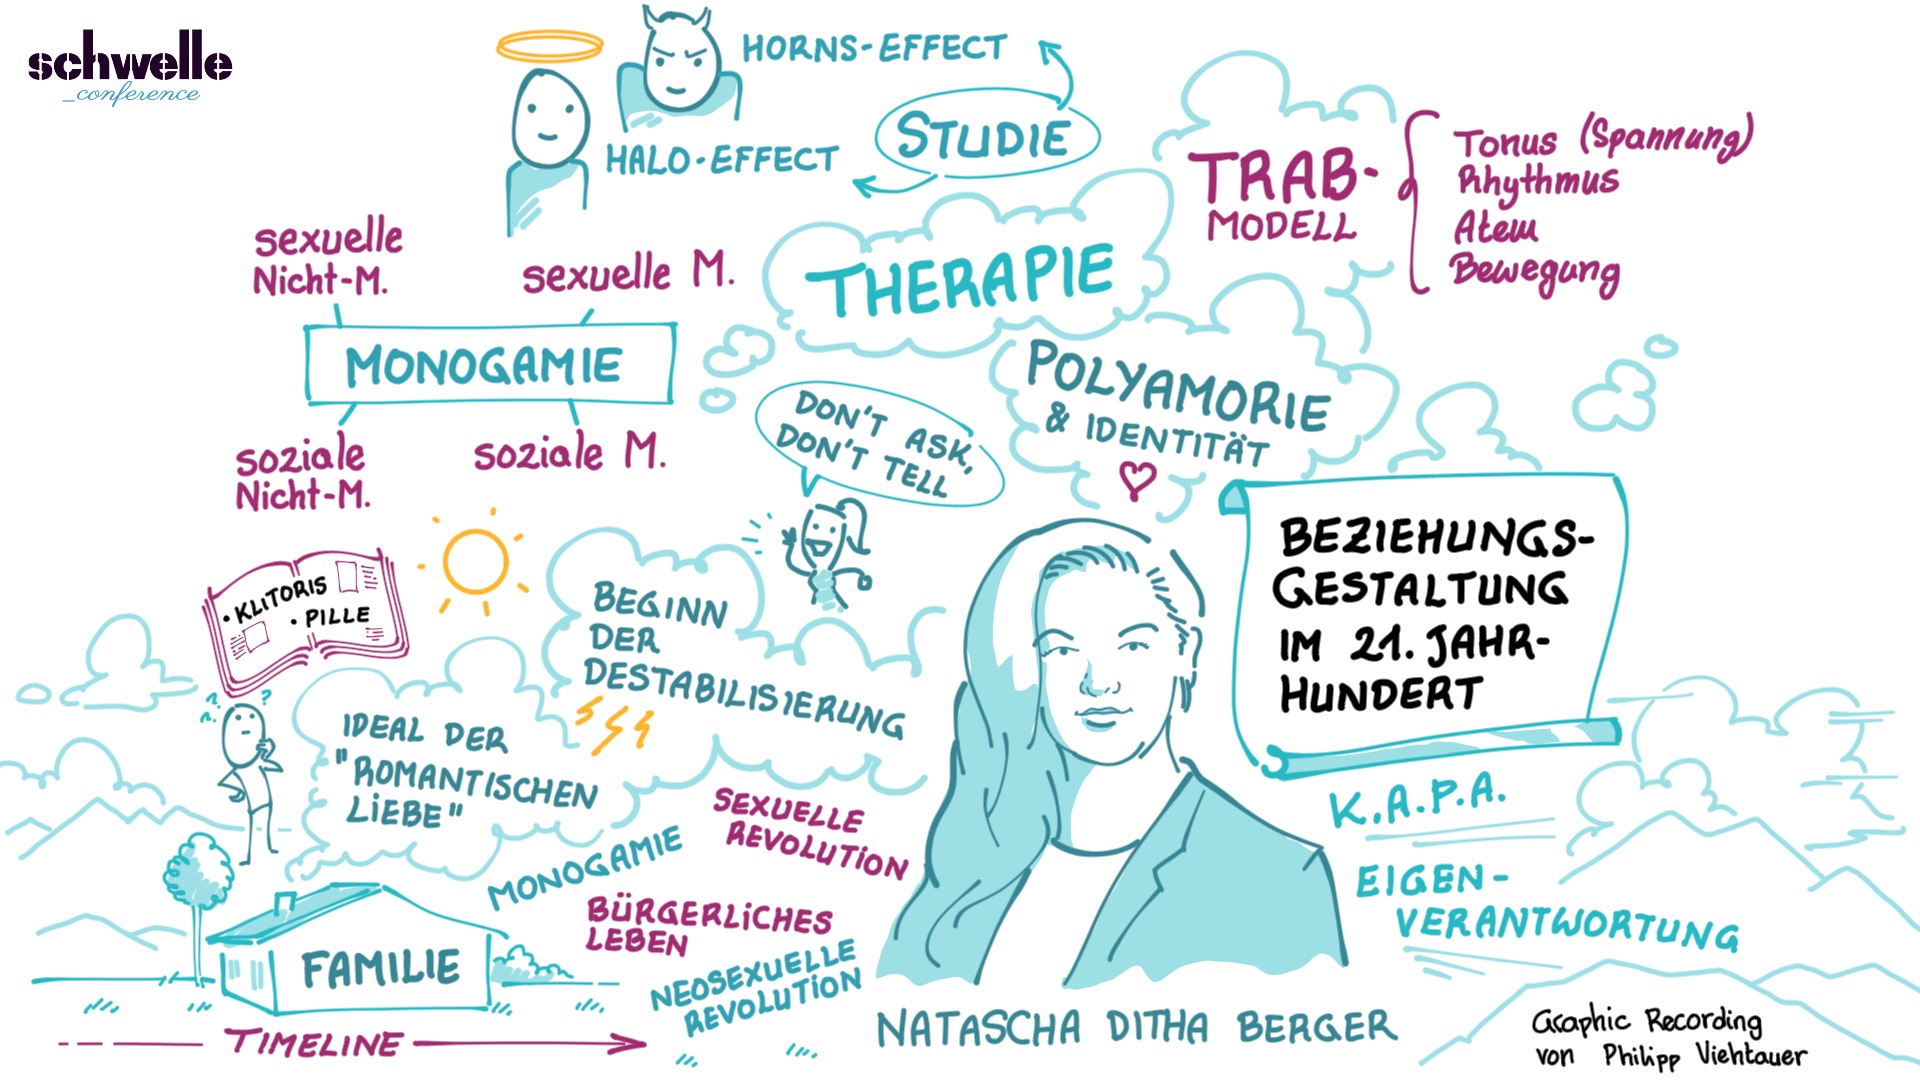 schwelle
_conference
HORNS-EFFECT
HALO-EFFECT
STUDIE
TRAB-
MODELL
Tonus (Spannung)
Rhythmus
Atem
Bewegung
THERAPIE
sexuelle
Nicht-M.
sexuelle M.
MONOGAMIE
soziale
Nicht-M.
soziale M.
POLYAMORIE
& IDENTITÄT
DON'T ASK,
DON'T TELL
BEZIEHUNGS-
GESTALTUNG
IM 21. JAHR-
HUNDERT
• KLITORIS
• PILLE
? ?
BEGINN
DER
DESTABILISIERUNG
IDEAL DER
"ROMANTISCHEN
LIEBE"
SEXUELLE
REVOLUTION
MONOGAMIE
BÜRGERLICHES
LEBEN
NEOSEXUELLE
REVOLUTION
FAMILIE
TIMELINE
K.A.P.A.
EIGEN-
VERANTWORTUNG
NATASCHA DITHA BERGER
Graphic Recording
von Philipp Viehtauer